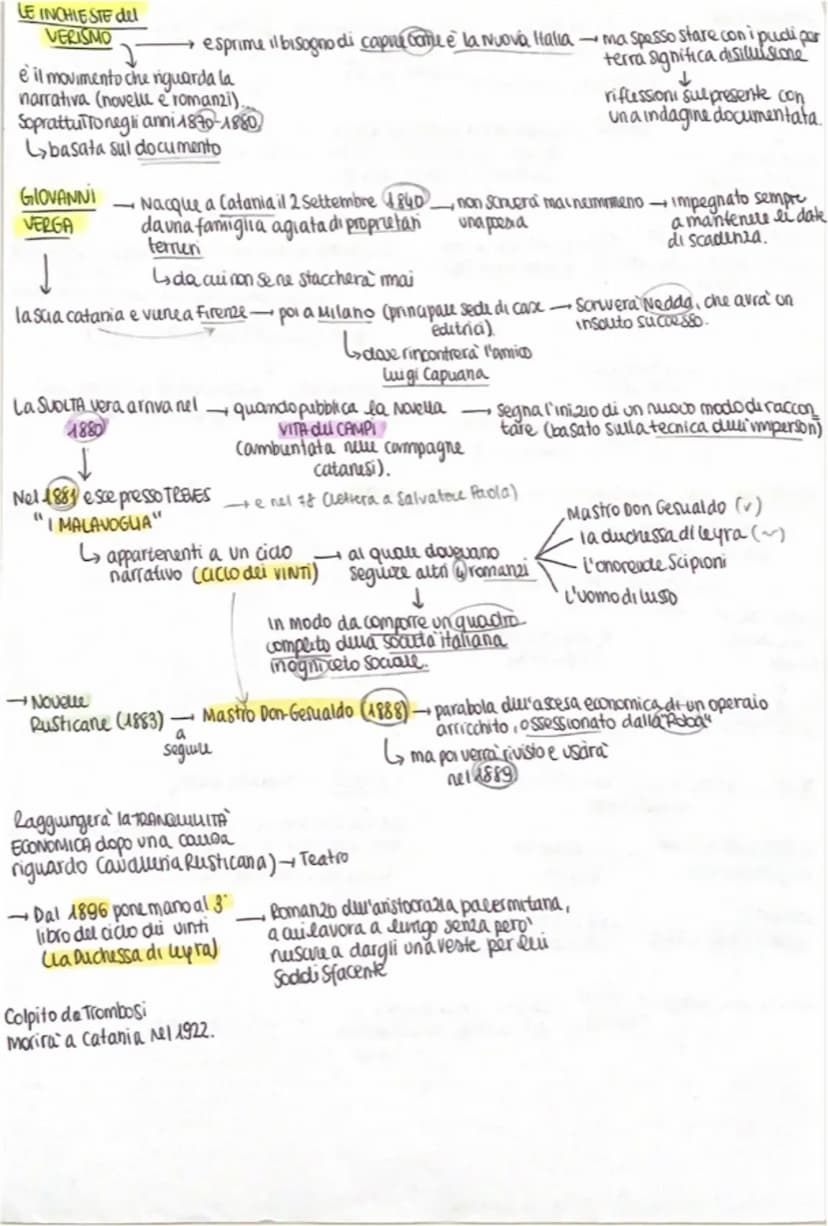 LE INCHIESTE del
VERISMO → esprime il bisogno di capire come è la nuova Italia → ma spesso stare con i piedi per
terra significa disillusione
↓
riflessioni sul presente con
una indagine documentata.
è il movimento che riguarda la
narrativa (novelle e romanzi).
Soprattutto negli anni 1870-1880
↳ basata sul documento
GIOVANNI
VERGA
→ Nacque a Catania il 2 Settembre 1840
da una famiglia agiata di proprietari
terrieri
↳ da cui non se ne staccherà mai
→ non scriverà mai nemmeno
una poesia
→ impegnato sempre
a mantenere le date
di scadenza.
lascia catania e viene a Firenze → poi a Milano (principale sede di case
editrici).
→ Scriverà Nedda, che avrà un
insolito successo.
↳ dove rincontrerà l'amico
Luigi Capuana
La SVOLTA vera arriva nel
1880
→ quando pubblica la Novella
VITA dei CAMPI
(ambientata nelle campagne
catanesi).
→ segna l'inizio di un nuovo modo di raccon
tare (basato sulla tecnica dell'imperson)
Nel 1881 esce presso TREVES
"I MALAVOGLIA"
→ e nel 78 (lettera a Salvatore Paola)
↳ appartenenti a un ciclo
narrativo (CICLO dei VINTI)
→ al quale dovevano
seguire altri 4 romanzi
Mastro Don Gesualdo (v)
la duchessa di leyra (~)
L'onorevole Scipioni
L'uomo di lusso
↓
In modo da comporre un quadro
completo della società italiana
in ogni ceto sociale.
→ Novelle
Rusticane (1883)
→
a
seguire
Mastro Don-Gesualdo (1888)
→ parabola dell'ascesa economica di un operaio
arricchito, ossessionato dalla "Roba"
↳ ma poi verrà rivisto e uscirà
nel 1889
Raggiungerà la TRANQUILLITÀ
ECONOMICA dopo una causa
riguardo Cavalleria Rusticana) → Teatro
→ Dal 1896 pone mano al 3°
libro del ciclo dei vinti
(La Duchessa di Leyra)
→ Romanzo dell'aristocrazia palermitana,
a cui lavora a lungo senza però
riuscire a dargli una veste per lui
Soddisfacente
Colpito da Trombosi
morirà a Catania nel 1922.